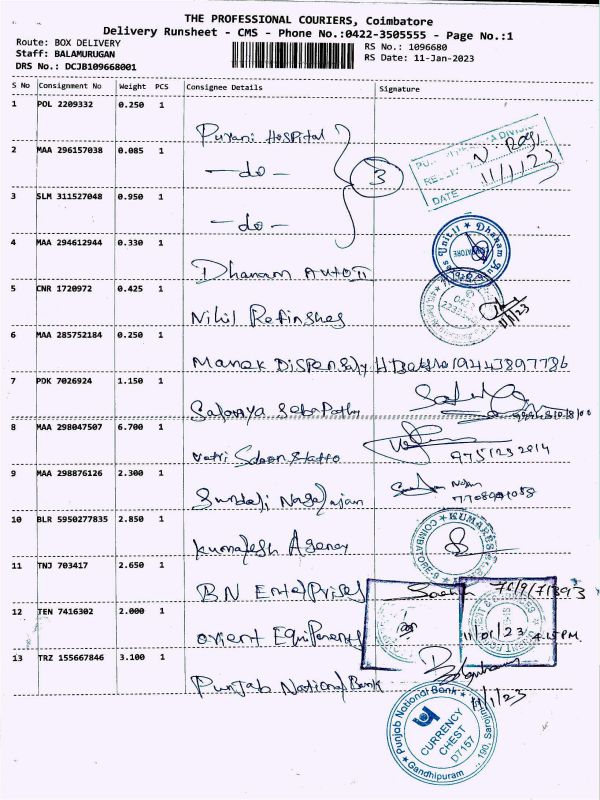 THE PROFESSIONAL COURIERS, Coimbatore
Delivery Runsheet - CMS - Phone No.:0422-3505555 - Page No.:1
Route: BOX DELIVERY
Staff: BALAMURUGAN
DRS No.: DCJB109668001
RS No.: 1096680
RS Date: 11-Jan-2023
S No Consignment No Weight PCS Consignee Details Signature
1 POL 2209332 0.250 1
Purani Hospital
2 MAA 296157038 0.085 1
-do-
3
RECEIVED
DATE 11/1/23
3 SLM 311527048 0.950 1
-do-
4 MAA 294612944 0.330 1
Dhanam Auto II
Unit II ★ Dhanam
5 CNR 1720972 0.425 1
Nikil Refinshes
11/1/23
6 MAA 285752184 0.250 1
Manek Dispensaly 9443897786
7 PDK 7026924 1.150 1
8 MAA 298047507 6.700 1
9751252014
9 MAA 298876126 2.300 1
Sundaji Nagalajan
7708991058
10 BLR 5950277835 2.850 1
Kumalesh Agency
COIMBATORE
11 TNJ 703417 2.650 1
BN Enterprises
12 TEN 7416302 2.000 1
orient Equipments
11/01/23 4.15 PM.
13 TRZ 155667846 3.100 1
Punjab National Bank
11/1/23
Punjab National Bank
CURRENCY
CHEST
D7157
Gandhipuram